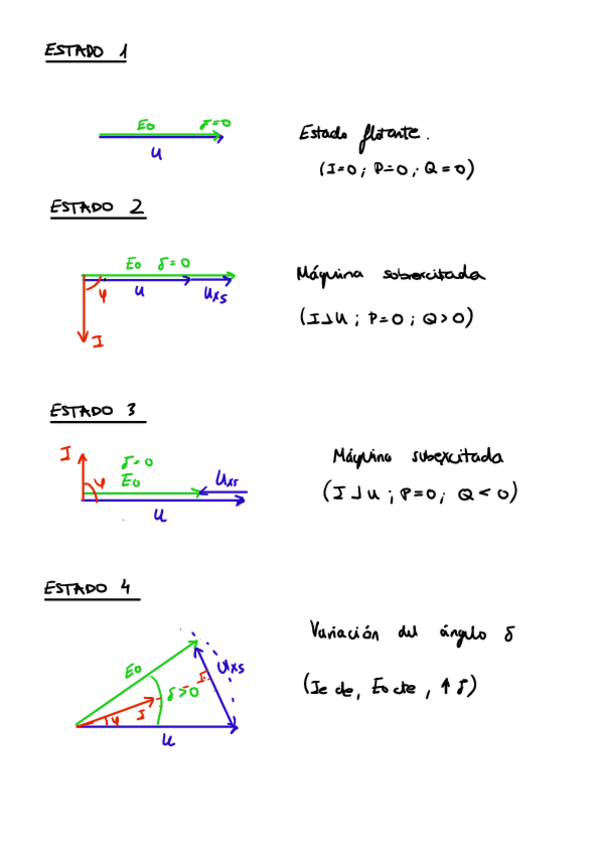 ESTADO 1
E0 δ=0
U
Estado flotante.
(I=0; P=0; Q=0)
ESTADO 2
E0 δ=0
φ U Uxs
I
Máquina sobrexcitada
(I⊥U; P=0; Q>0)
ESTADO 3
I δ=0
φ E0 Uxs
U
Máquina subexcitada
(I⊥U; P=0; Q<0)
ESTADO 4
E0 Uxs
δ>0
φ I
U
Variación del ángulo δ
(Ie cte, E0 cte, ↑δ)